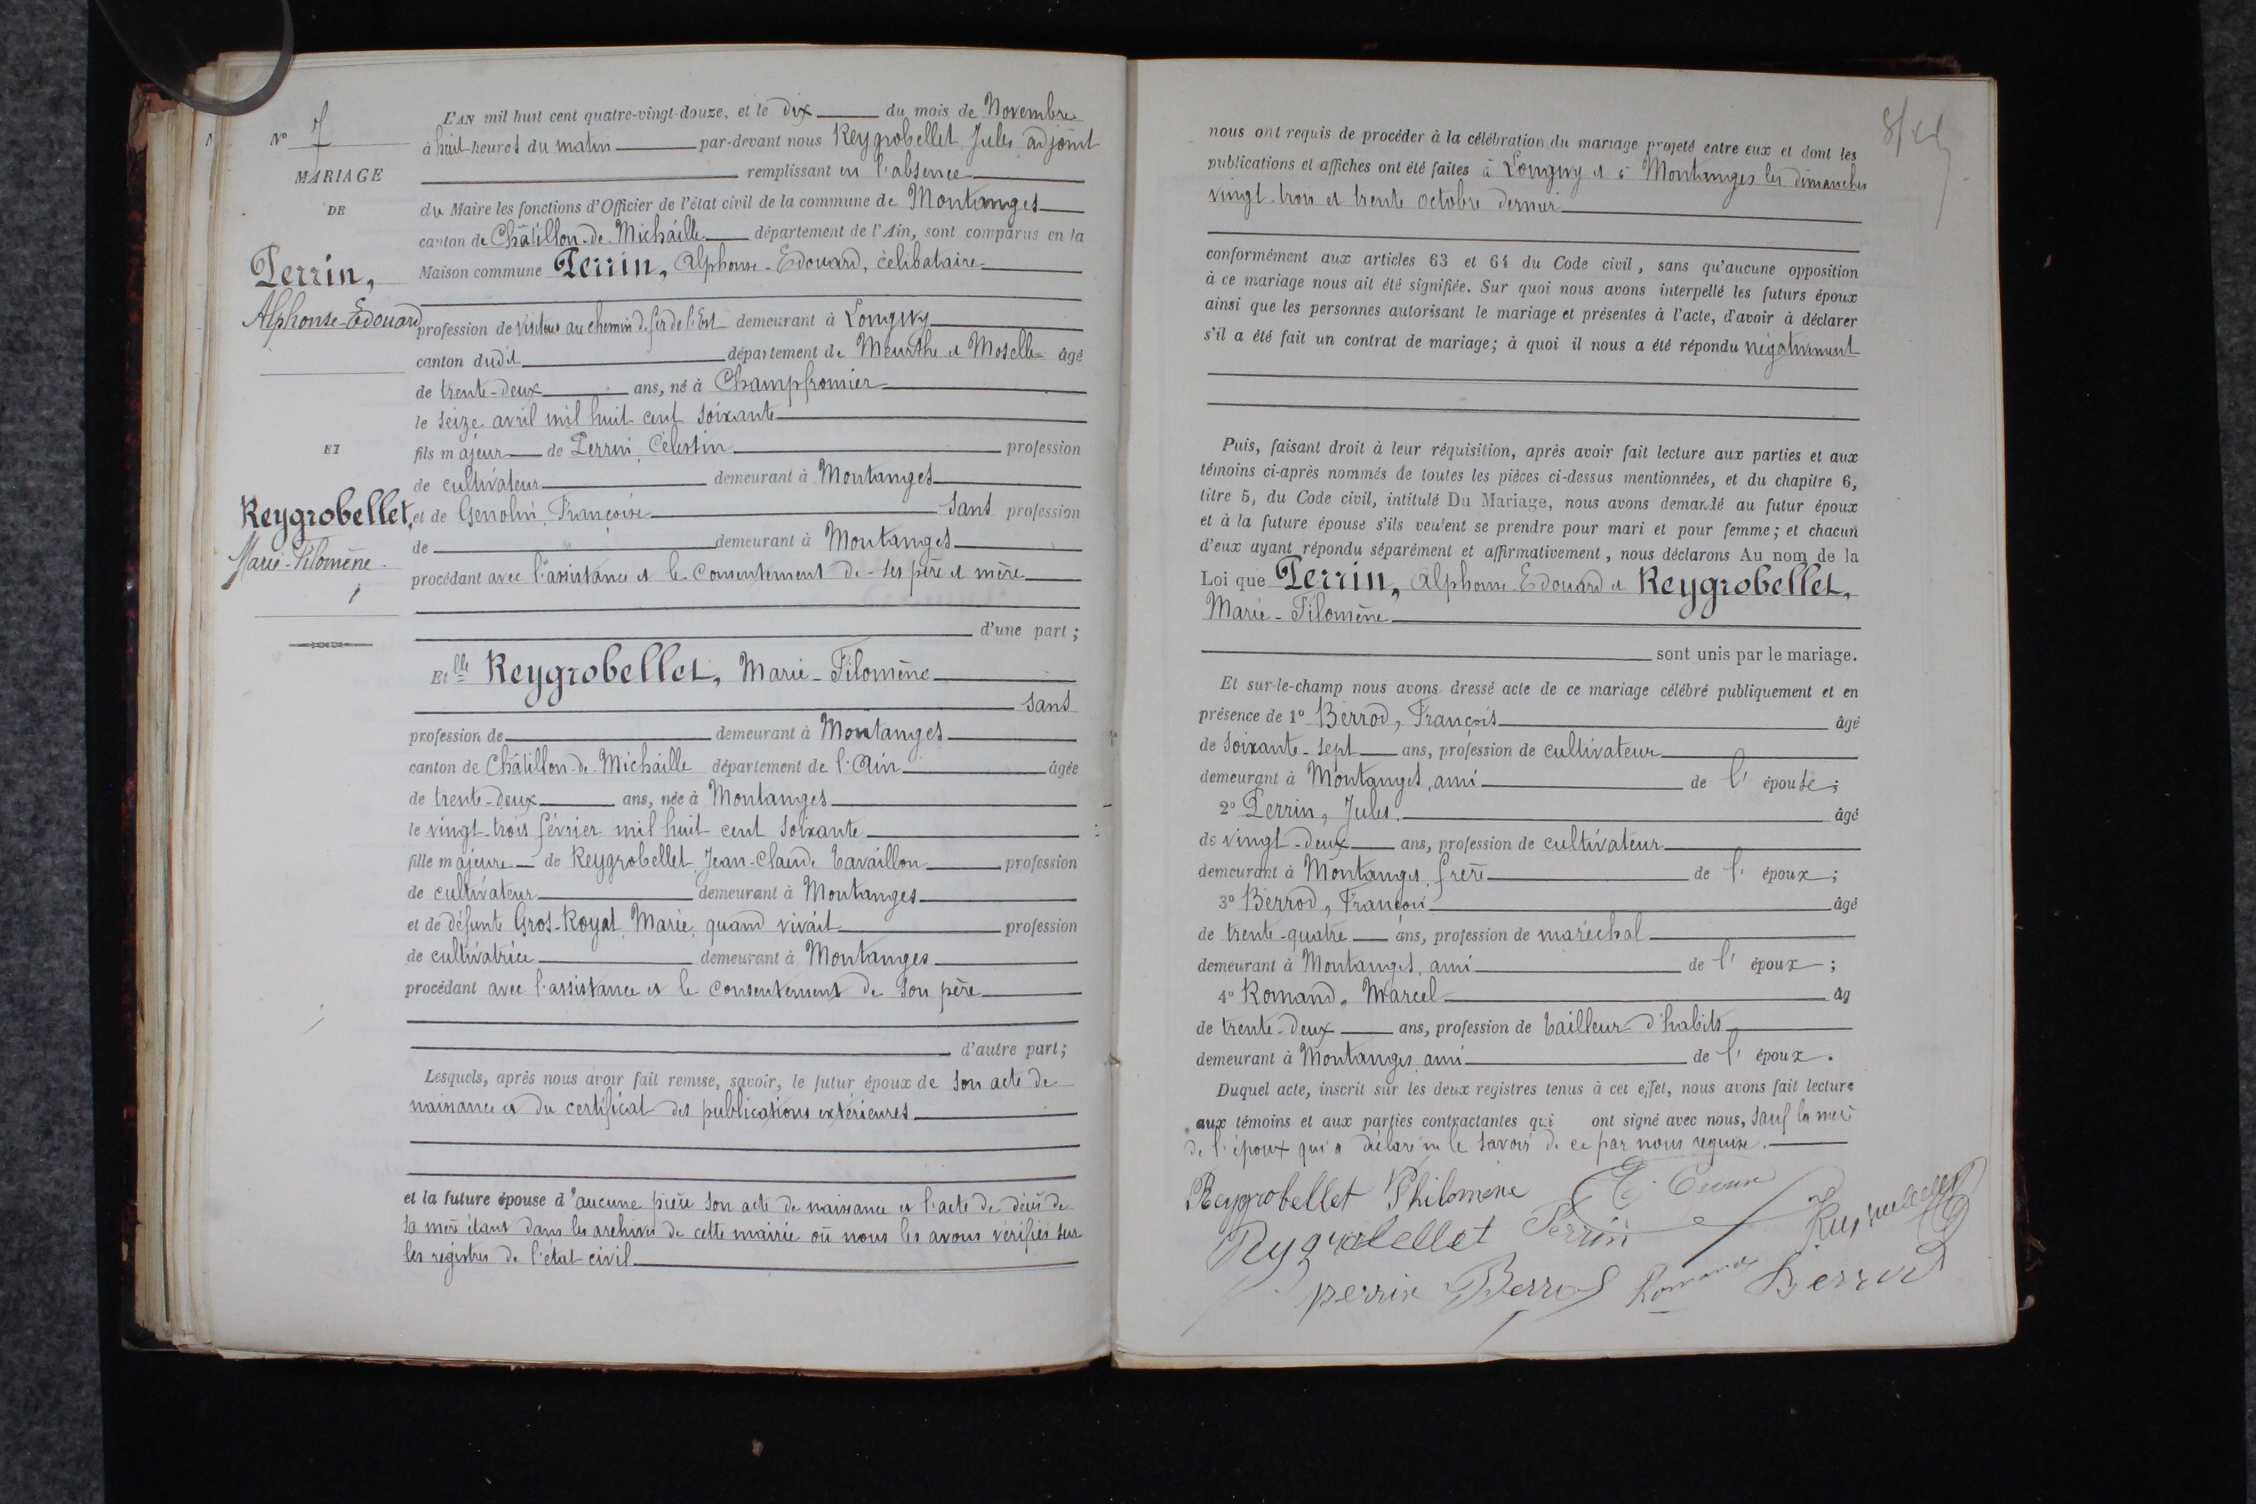 N° 7
MARIAGE
DE
Perrin,
Alphonse-Edouard
ET
Reygrobellet,
Marie-Filomène
L'AN mil huit cent quatre-vingt-douze, et le dix du mois de Novembre
à huit heures du matin par-devant nous Reygrobellet, Jules, adjoint
remplissant en l'absence
du Maire les fonctions d'Officier de l'état civil de la commune de Montanges
canton de Châtillon-de-Michaille département de l'Ain, sont comparus en la
Maison commune Perrin, Alphonse-Edouard, célibataire
profession de visiteur au chemin de fer de l'Est demeurant à Longwy
canton dudit département de Meurthe et Moselle âgé
de trente-deux ans, né à Champfromier
le seize avril mil huit cent soixante
fils majeur de Perrin, Célestin profession
de cultivateur demeurant à Montanges
et de Genolin, Françoise sans profession
de demeurant à Montanges
procédant avec l'assistance et le consentement de ses père et mère
d'une part ;
Et lle Reygrobellet, Marie-Filomène
sans
profession de demeurant à Montanges
canton de Châtillon-de-Michaille département de l'Ain âgée
de trente-deux ans, née à Montanges
le vingt-trois février mil huit cent soixante
fille majeure de Reygrobellet, Jean-Claude Tavaillon profession
de cultivateur demeurant à Montanges
et de défunte Gros-Royat, Marie, quand vivait profession
de cultivatrice demeurant à Montanges
procédant avec l'assistance et le consentement de son père
d'autre part ;
Lesquels, après nous avoir fait remise, savoir, le futur époux de son acte de
naissance et du certificat des publications extérieures
et la future épouse d'aucune pièce son acte de naissance et l'acte de décès de
sa mère étant dans les archives de cette mairie où nous les avons vérifiés sur
les registres de l'état civil
nous ont requis de procéder à la célébration du mariage projeté entre eux et dont les
publications et affiches ont été faites à Longwy et à Montanges les dimanches
vingt-trois et trente octobre dernier
conformément aux articles 63 et 64 du Code civil, sans qu'aucune opposition
à ce mariage nous ait été signifiée. Sur quoi nous avons interpellé les futurs époux
ainsi que les personnes autorisant le mariage et présentes à l'acte, d'avoir à déclarer
s'il a été fait un contrat de mariage ; à quoi il nous a été répondu négativement
Puis, faisant droit à leur réquisition, après avoir fait lecture aux parties et aux
témoins ci-après nommés de toutes les pièces ci-dessus mentionnées, et du chapitre 6,
titre 5, du Code civil, intitulé Du Mariage, nous avons demandé au futur époux
et à la future épouse s'ils veulent se prendre pour mari et pour femme ; et chacun
d'eux ayant répondu séparément et affirmativement, nous déclarons Au nom de la
Loi que Perrin, Alphonse-Edouard et Reygrobellet,
Marie-Filomène
sont unis par le mariage.
Et sur-le-champ nous avons dressé acte de ce mariage célébré publiquement et en
présence de 1° Berrod, François âgé
de soixante-sept ans, profession de cultivateur
demeurant à Montanges, ami de l'épouse ;
2° Perrin, Jules âgé
de vingt-deux ans, profession de cultivateur
demeurant à Montanges, frère de l'époux ;
3° Berrod, François âgé
de trente-quatre ans, profession de maréchal
demeurant à Montanges, ami de l'époux ;
4° Romand, Marcel âg
de trente-deux ans, profession de tailleur d'habits
demeurant à Montanges, ami de l'époux.
Duquel acte, inscrit sur les deux registres tenus à cet effet, nous avons fait lecture
aux témoins et aux parties contractantes qui ont signé avec nous, sauf la mère
de l'époux qui a déclaré ne le savoir de ce par nous requise.
Reygrobellet Philomène
Reygrobellet Perrin
perrin Berrod Romand Berrod